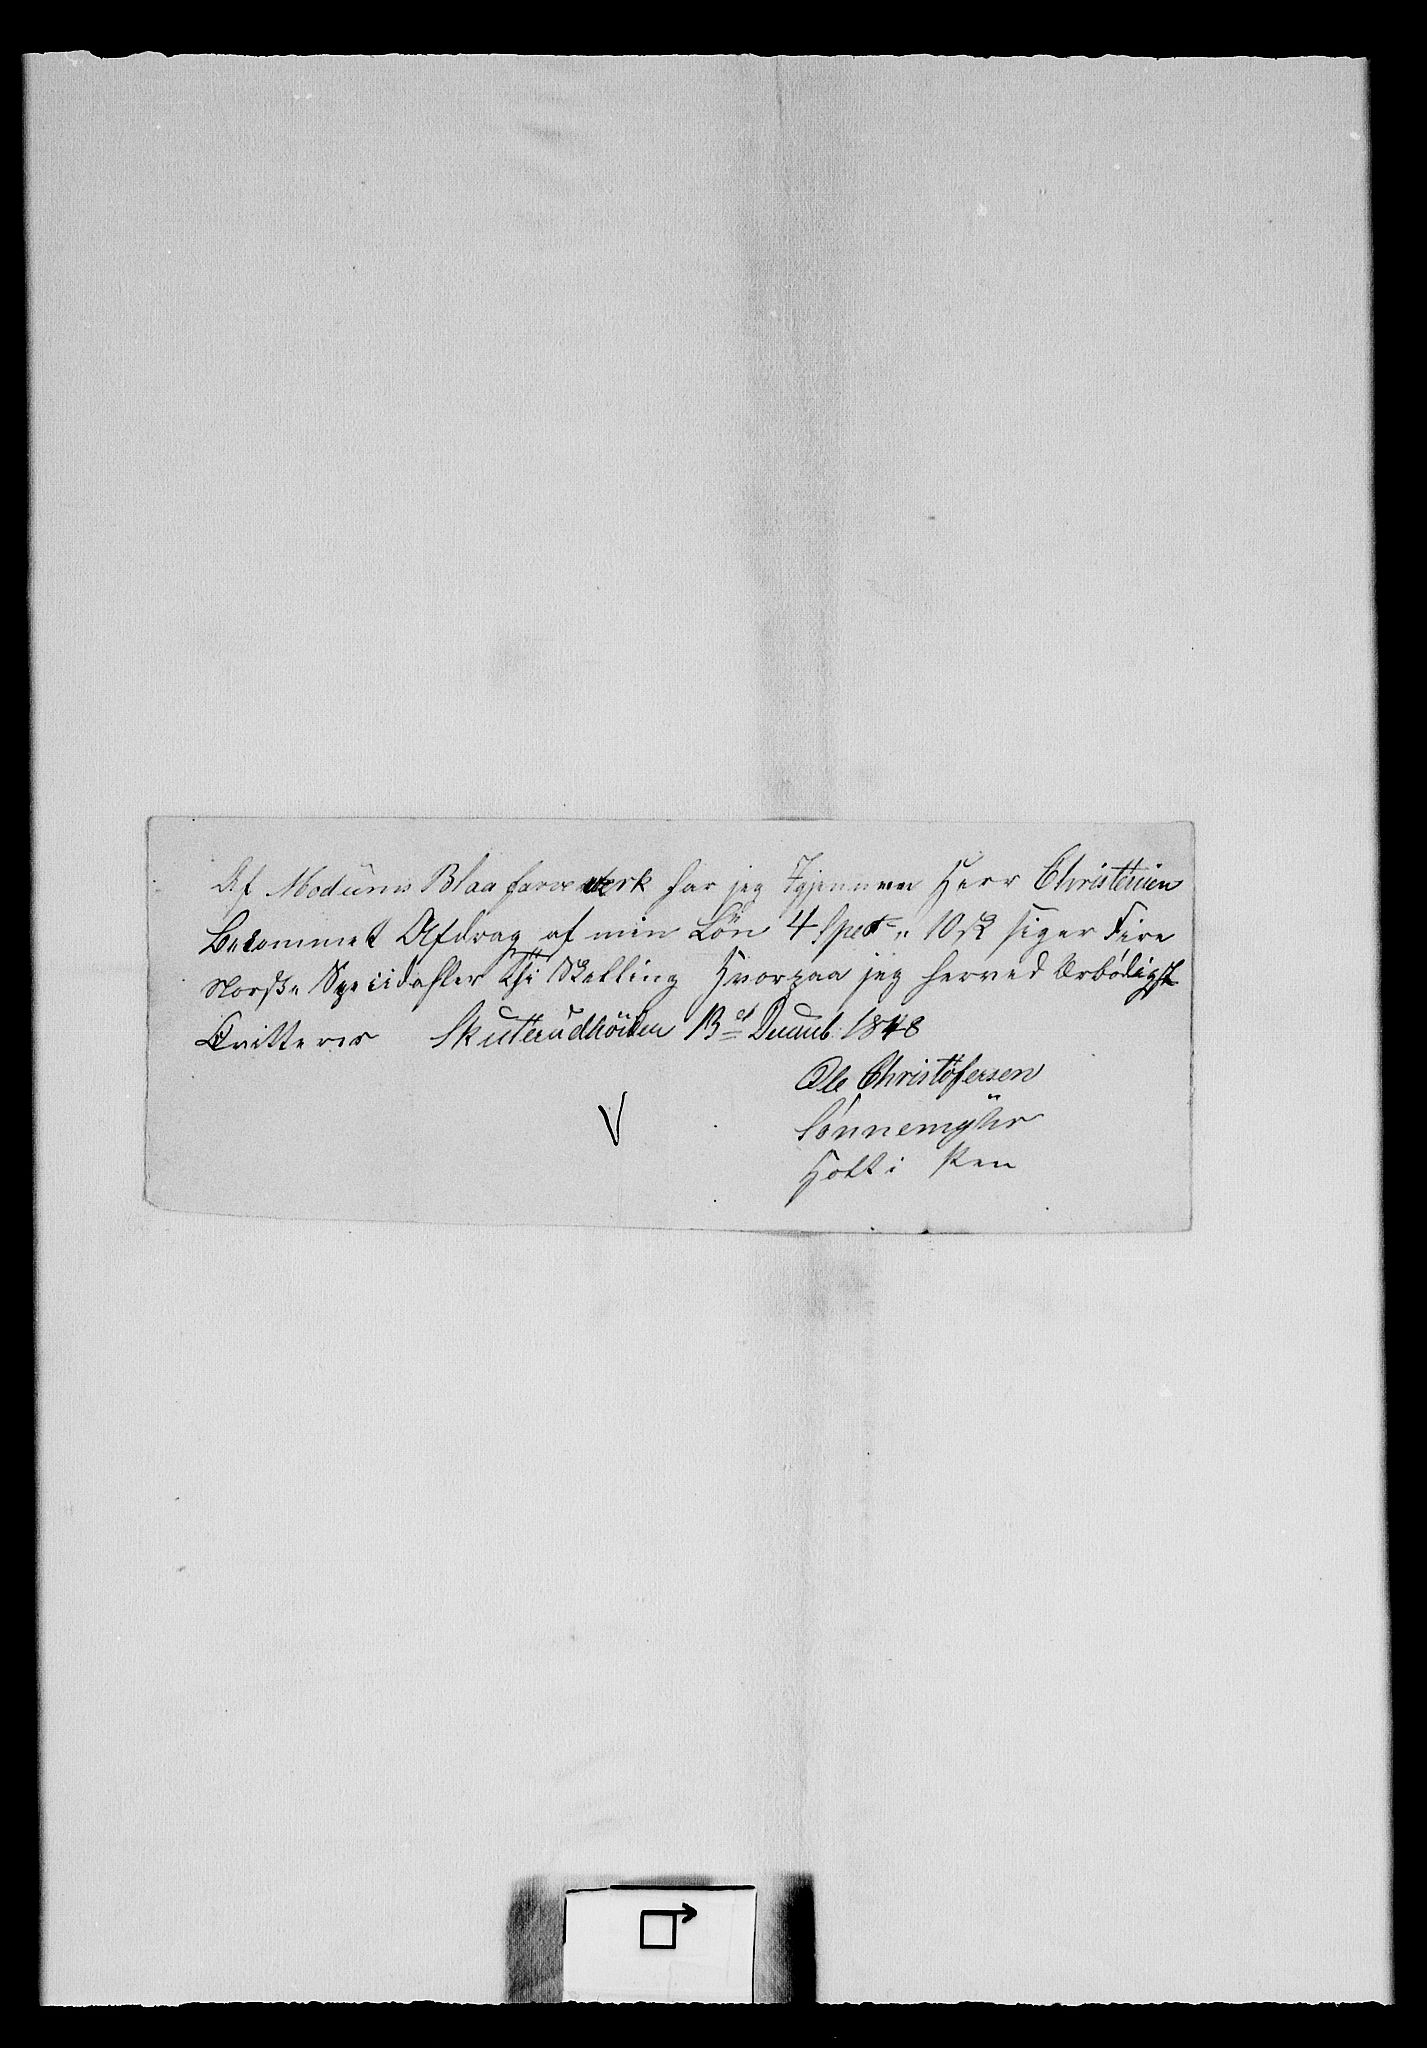 Af Modums Blaafarveverk har jeg Igjennem Herr Christensen
Bekommet Afdrag af min Lön 4 Spd " 10 sk siger Fire
Norske Speciedahler Thi Skelling Hvorpaa jeg herved Ærbödigst
Qvitteres Skuterudhöiden 13de Decemb. 1848
Ole Christofersen
Sönnemyhr
Holt i Pen